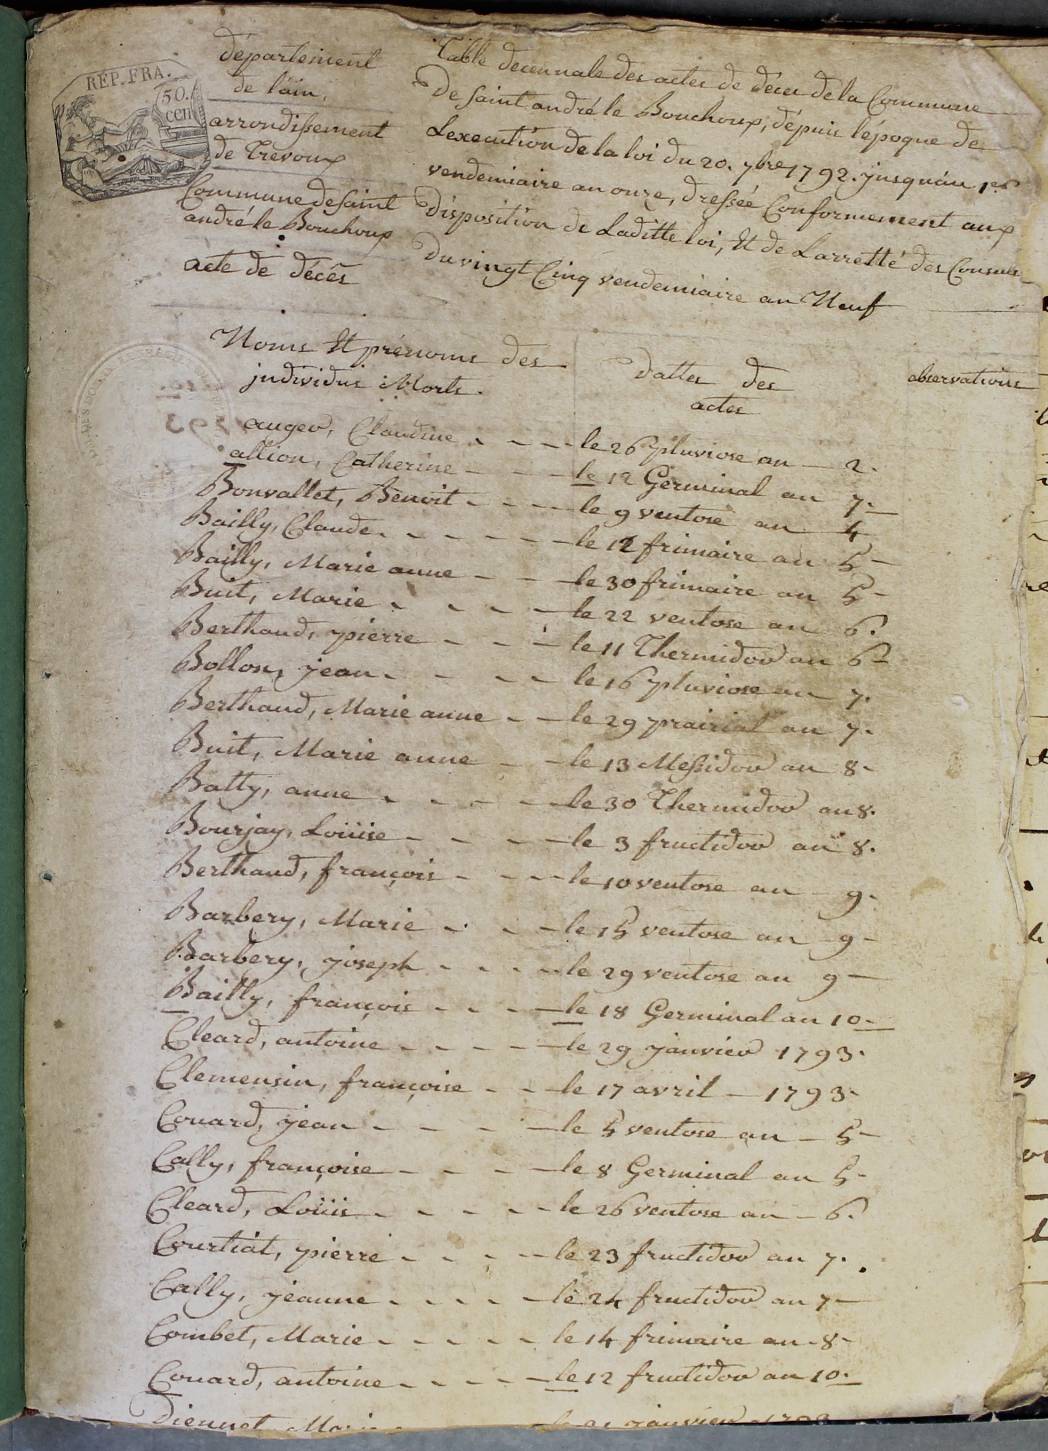 REP. FRA.
50.
cen
département
de l'ain,
arrondissement
de Trevoux
Commune de saint
andré le Bouchoux
acte de décès
Table decennale des actes de déces de la Commune
De saint andré le Bouchoux, depuis l'époque de
L'execution de la loi du 20. 7bre 1792. jusqu'au 1er
vendemiaire an onze, dressée Conformement aux
Disposition de Laditte loi, Et de L'arretté des Consuls
Du vingt Cinq vendemiaire an Neuf
Noms Et prénoms des
individus Morts.
Dattes des
actes
observations
auger, Claudine - - - le 26 pluviose an - 2.
allion, Catherine - - - le 12 Germinal an 7.
Bonvallet, Benoit - - - le 9 ventose an 4
Bailly, Claude - - - le 12 frimaire an 5 -
Bailly, Marie anne - - le 30 frimaire an 5 -
Buit, Marie - - - le 22 ventose an 6.
Berthaud, pierre - - - le 11 Thermidor an 6 -
Bollon, jean - - - le 16 pluviose an 7.
Berthaud, Marie anne - - le 29 prairial an 7.
Buit, Marie anne - - le 13 Messidor an 8 -
Batty, anne - - - le 30 Thermidor an 8.
Bourjay, Loüise - - - le 3 fructidor an 8.
Berthaud, françois - - - le 10 ventose an - 9 -
Barbery, Marie - - - le 15 ventose an - 9 -
Barbery, joseph - - - le 29 ventose an 9 -
Bailly, françois - - - le 18 Germinal an 10 -
Cleard, antoine - - - le 29 janvier 1793.
Clemensin, françoise - - le 17 avril - 1793 -
Couard, jean - - - le 5 ventose an - 5 -
Cally, françoise - - - le 8 Germinal an 5 -
Cleard, Loüis - - - le 26 ventose an - 6.
Courtiat, pierre - - - le 23 fructidor an 7.
Cally, jeanne - - - le 24 fructidor an 7 -
Combet, Marie - - - le 14 frimaire an - 8 -
Couard, antoine - - - le 12 fructidor an 10.